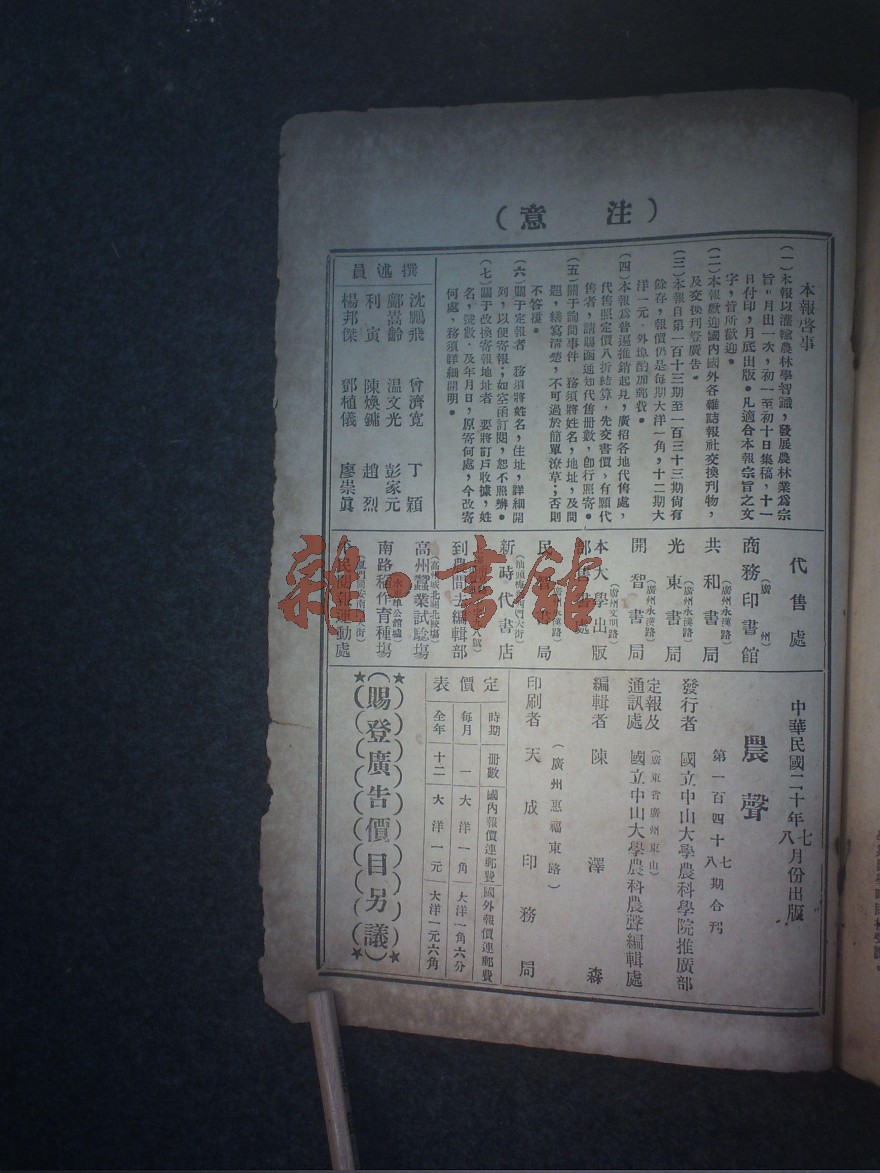 （注意）
本報啓事
（一）本報以灌輸農林學智識，發展農林業爲宗
旨，月出一次，初一至初十日集稿，十一
日付印，月底出版。凡適合本報宗旨之文
字，皆所歡迎。
（二）本報歡迎國內國外各雜誌報社交換刊物，
及交換刊登廣告。
（三）本報自第一百十三期至一百三十三期尙有
餘存，報價仍是每期大洋一角，十二期大
洋一元。外埠酌加郵費。
（四）本報爲普遍推銷起見，廣招各地代售處，
代售照定價八折結算，先交書價，有願代
售者，請賜函通知代售册數，卽行照寄。
（五）關于詢問事件，務須將姓名，地址，及問
題，繕寫清楚，不可過於簡單潦草；否則
不答覆。
（六）關于定報者，務須將姓名，住址，詳細開
列，以便寄報；如空函訂閱，恕不照辦。
（七）關于改換寄報地址者，要將訂戶收據，姓
名，號數，及年月日，原寄何處，今改寄
何處，務須詳細開明。
撰述員
沈鵬飛 曾濟寬 丁穎
鄺嵩齡 温文光 彭家元
利寅 陳煥鏞 趙烈
楊邦傑 鄧植儀 廖崇眞
代售處
商務印書館（廣州）
共和書局（廣州永漢路）
光東書局（廣州永漢路）
開智書局（廣州永漢路）
本大學出版部售書處（廣州文明路）
民 局
新時代書店
到農間去編輯部
高州蠶業試驗場
南路稻作育種場
民 運動處
中華民國二十年七八月份出版
農聲
第一百四十七八期合刊
發行者 國立中山大學農科學院推廣部
定報及通訊處 國立中山大學農科農聲編輯處
（廣東省廣州東山）
編輯者 陳澤森
印刷者 天成印務局
（廣州惠福東路）
定價表
時期 册數 國內報價連郵費 國外報價連郵費
每月 一 大洋一角 大洋一角六分
全年 十二 大洋一元 大洋一元六角
賜登廣告價目另議
雜·書館